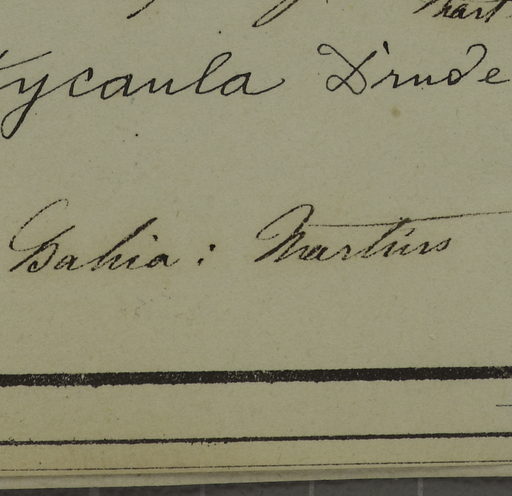 Mart
ycaula Drude
Bahia: Martius